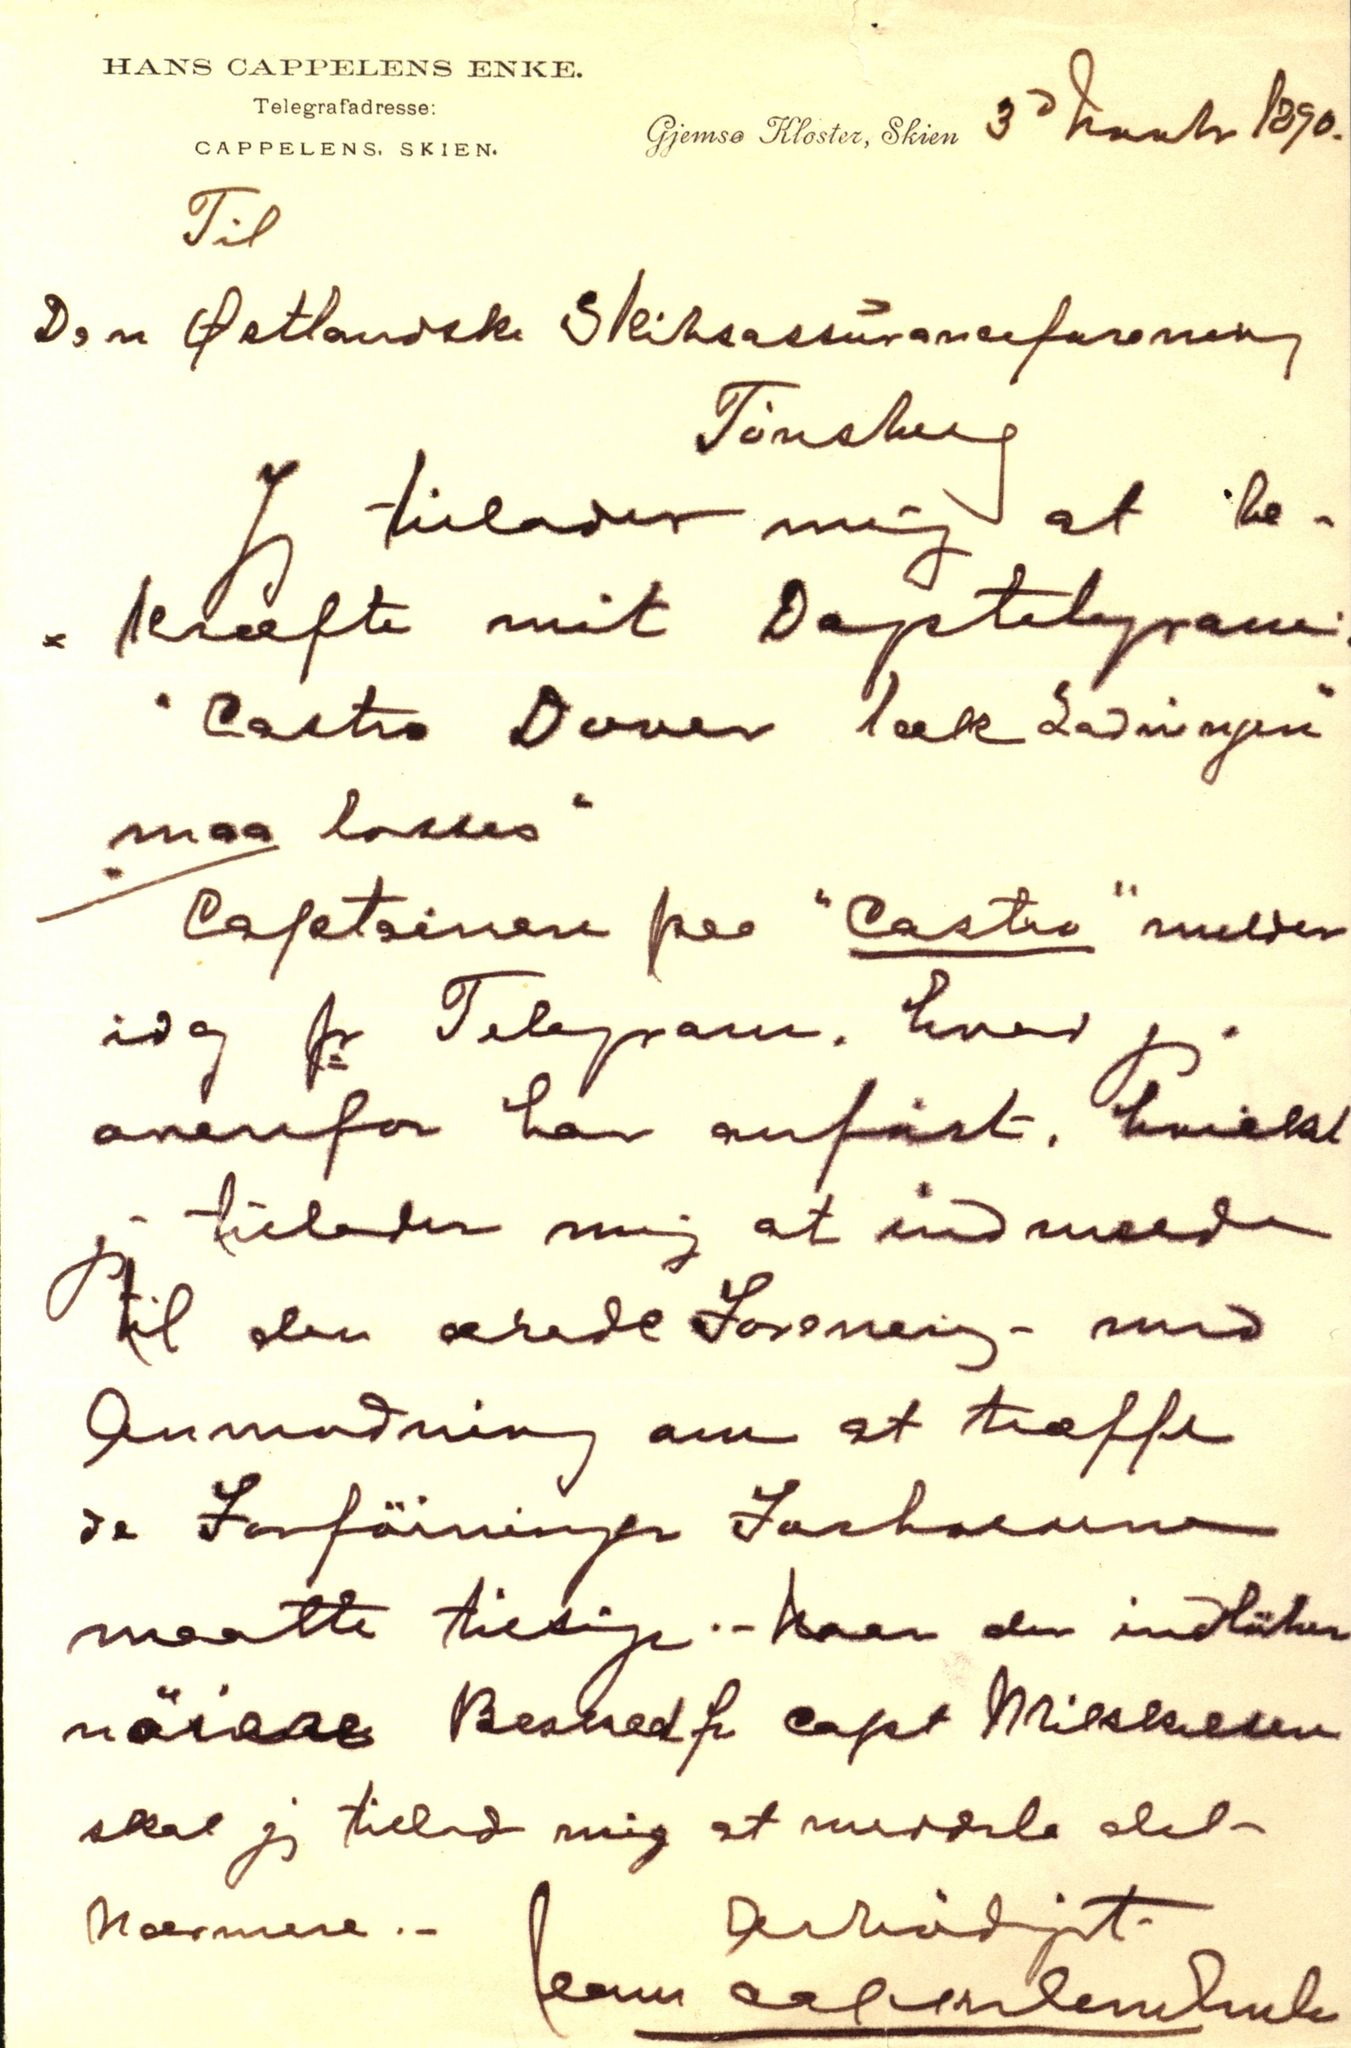 HANS CAPPELENS ENKE.
Telegrafadresse:
CAPPELENS, SKIEN.
Gjemsø Kloster, Skien 3d 1890.
Til
Den Østlandske Skibsassüranceforening
Tönsberg
Jeg tillader mig at be-
kræfte mit Dagstelegram:
"Castro Dover læk Ladningen
maa losses"
Captainen paa "Castro" melder
idag pr Telegram, hvad jeg
ovenfor har anfört, hvilket
jeg tillader mig at indmelde
til den ærede Forening - med
Anmodning om at træffe
de Forföininger Forholdene
maatte tilsige .- Naar der indlöber
nöiere Besked fr capt
skal jeg tillade mig at meddele det
Nærmere .-
Ærbödigst
Hans Cappelens Enke